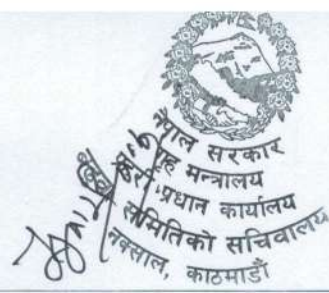 नेपाल सरकार
गृह मन्त्रालय
प्रहरी प्रधान कार्यालय
समितिको सचिवालय
नक्साल, काठमाडौँ